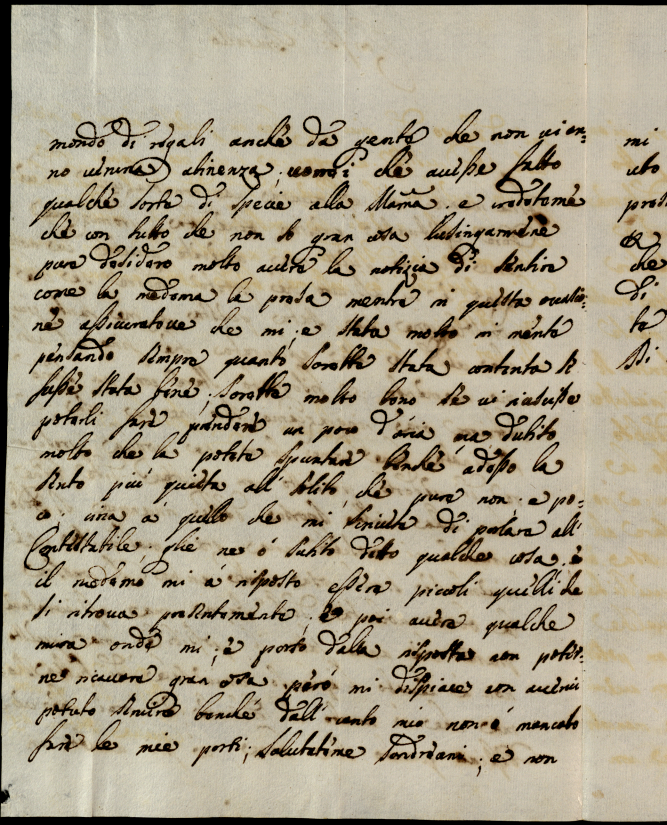 mondo di regali anche da gente che non vi en=
no veruna atinenza; vorrei che avesse fatto
qualche sorte di specie alla Mama. e credeteme
che con tutto che non so gran cosa lusingarmene
pure desidero molto avere la notizia di sentire
come la medema la presa mentre in questa ocasio=
ne assicuratove che mi; e stata molto in mente
pensando sempre quanto sareste stata contenta se
fuse stata bene; sarebbe molto bono se vi riduse
poterli fare prendere un poco d'aria, ma dubito
molto che la potete spuntare benche adesso la
sento piu quieta all' solito, che pure non; e po=
co; circa a quello che mi di parlare all'
Contestabile; glie ne ó subito detto qualche cosa. é
il medemo mi á risposto essere piccoli quelli che
si ritrova presentemente; e poi avere qualche
mira onde mi; é parso dalla risposta non poter=
ne ricavare gran cosa peró mi dispiace non avervi
potuto servire benche dall' canto mio non ó mancato
fare le mie parti; salutateme; e non
mi
uto
pross
che
di
te
si